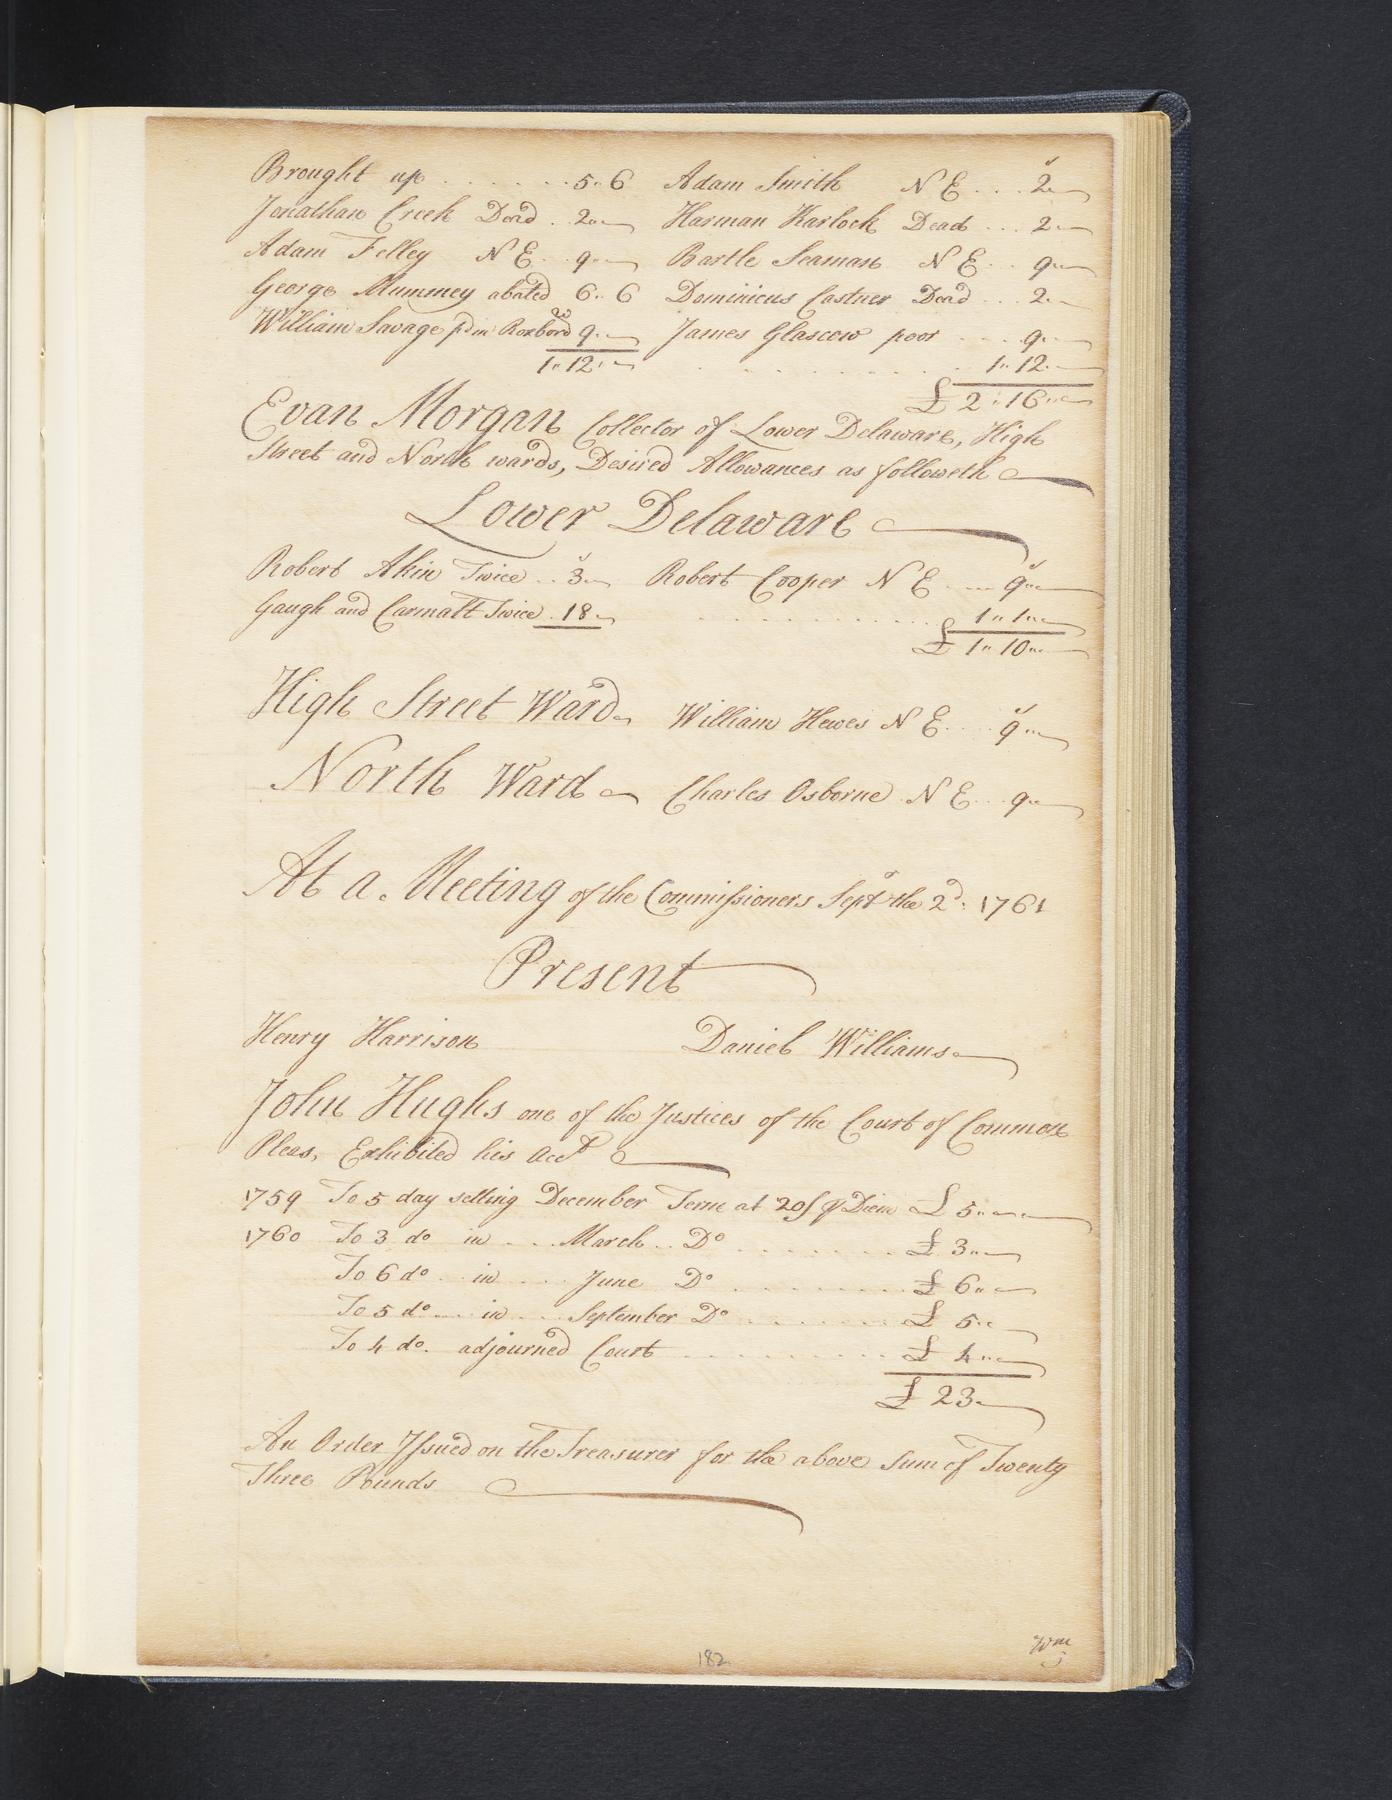 Brought up . . . . . . . 5.. 6 Adam Smith N E . . . 2..
Jonathan Creek Dead . 2.. Harman Karlock Dead . . . 2..
Adam Felley N E . . 9.. Bartle Seaman N E . . 9..
George Mummey abated 6.. 6 Dominicus Castner Dead . . . 2..
William Savage pd in Roxbord 9.. James Glascow poor . . . . 9..
1.. 12.. . . . . . . . . . 1.. 12..
£ 2.. 16..
Evan Morgan Collector of Lower Delaware, High
Street and North wards, Desired Allowances as followeth
Lower Delaware
Robert Akin Twice . . 3.. Robert Cooper N E . . . . 9..
Gaugh and Carmalt Twice . 18.. . . . . . . . . . . 1.. 1..
£ 1.. 10..
High Street Ward William Hewes N E . . . . 9..
North Ward Charles Osborne . N E . . 9..
At a Meeting of the Commissioners Sepr. the 2d: 1761
Present
Henry Harrison Daniel Williams
John Hughs one of the Justices of the Court of Common
Pleas, Exhibited his Acct
1759 To 5 day setting December Term at 20/ ⅌ Diem £ 5..
1760 To 3 do in . . . March . . Do . . . . . . . . £ 3..
To 6 do . in . . . June Do . . . . . . . . . £ 6..
To 5 do . . in . . . September Do . . . . . . . £ 5..
To 4 do. adjourned Court . . . . . . . . . £ 4..
£ 23..
An Order Issued on the Treasurer for the above Sum of Twenty
Three Pounds
Wm
182